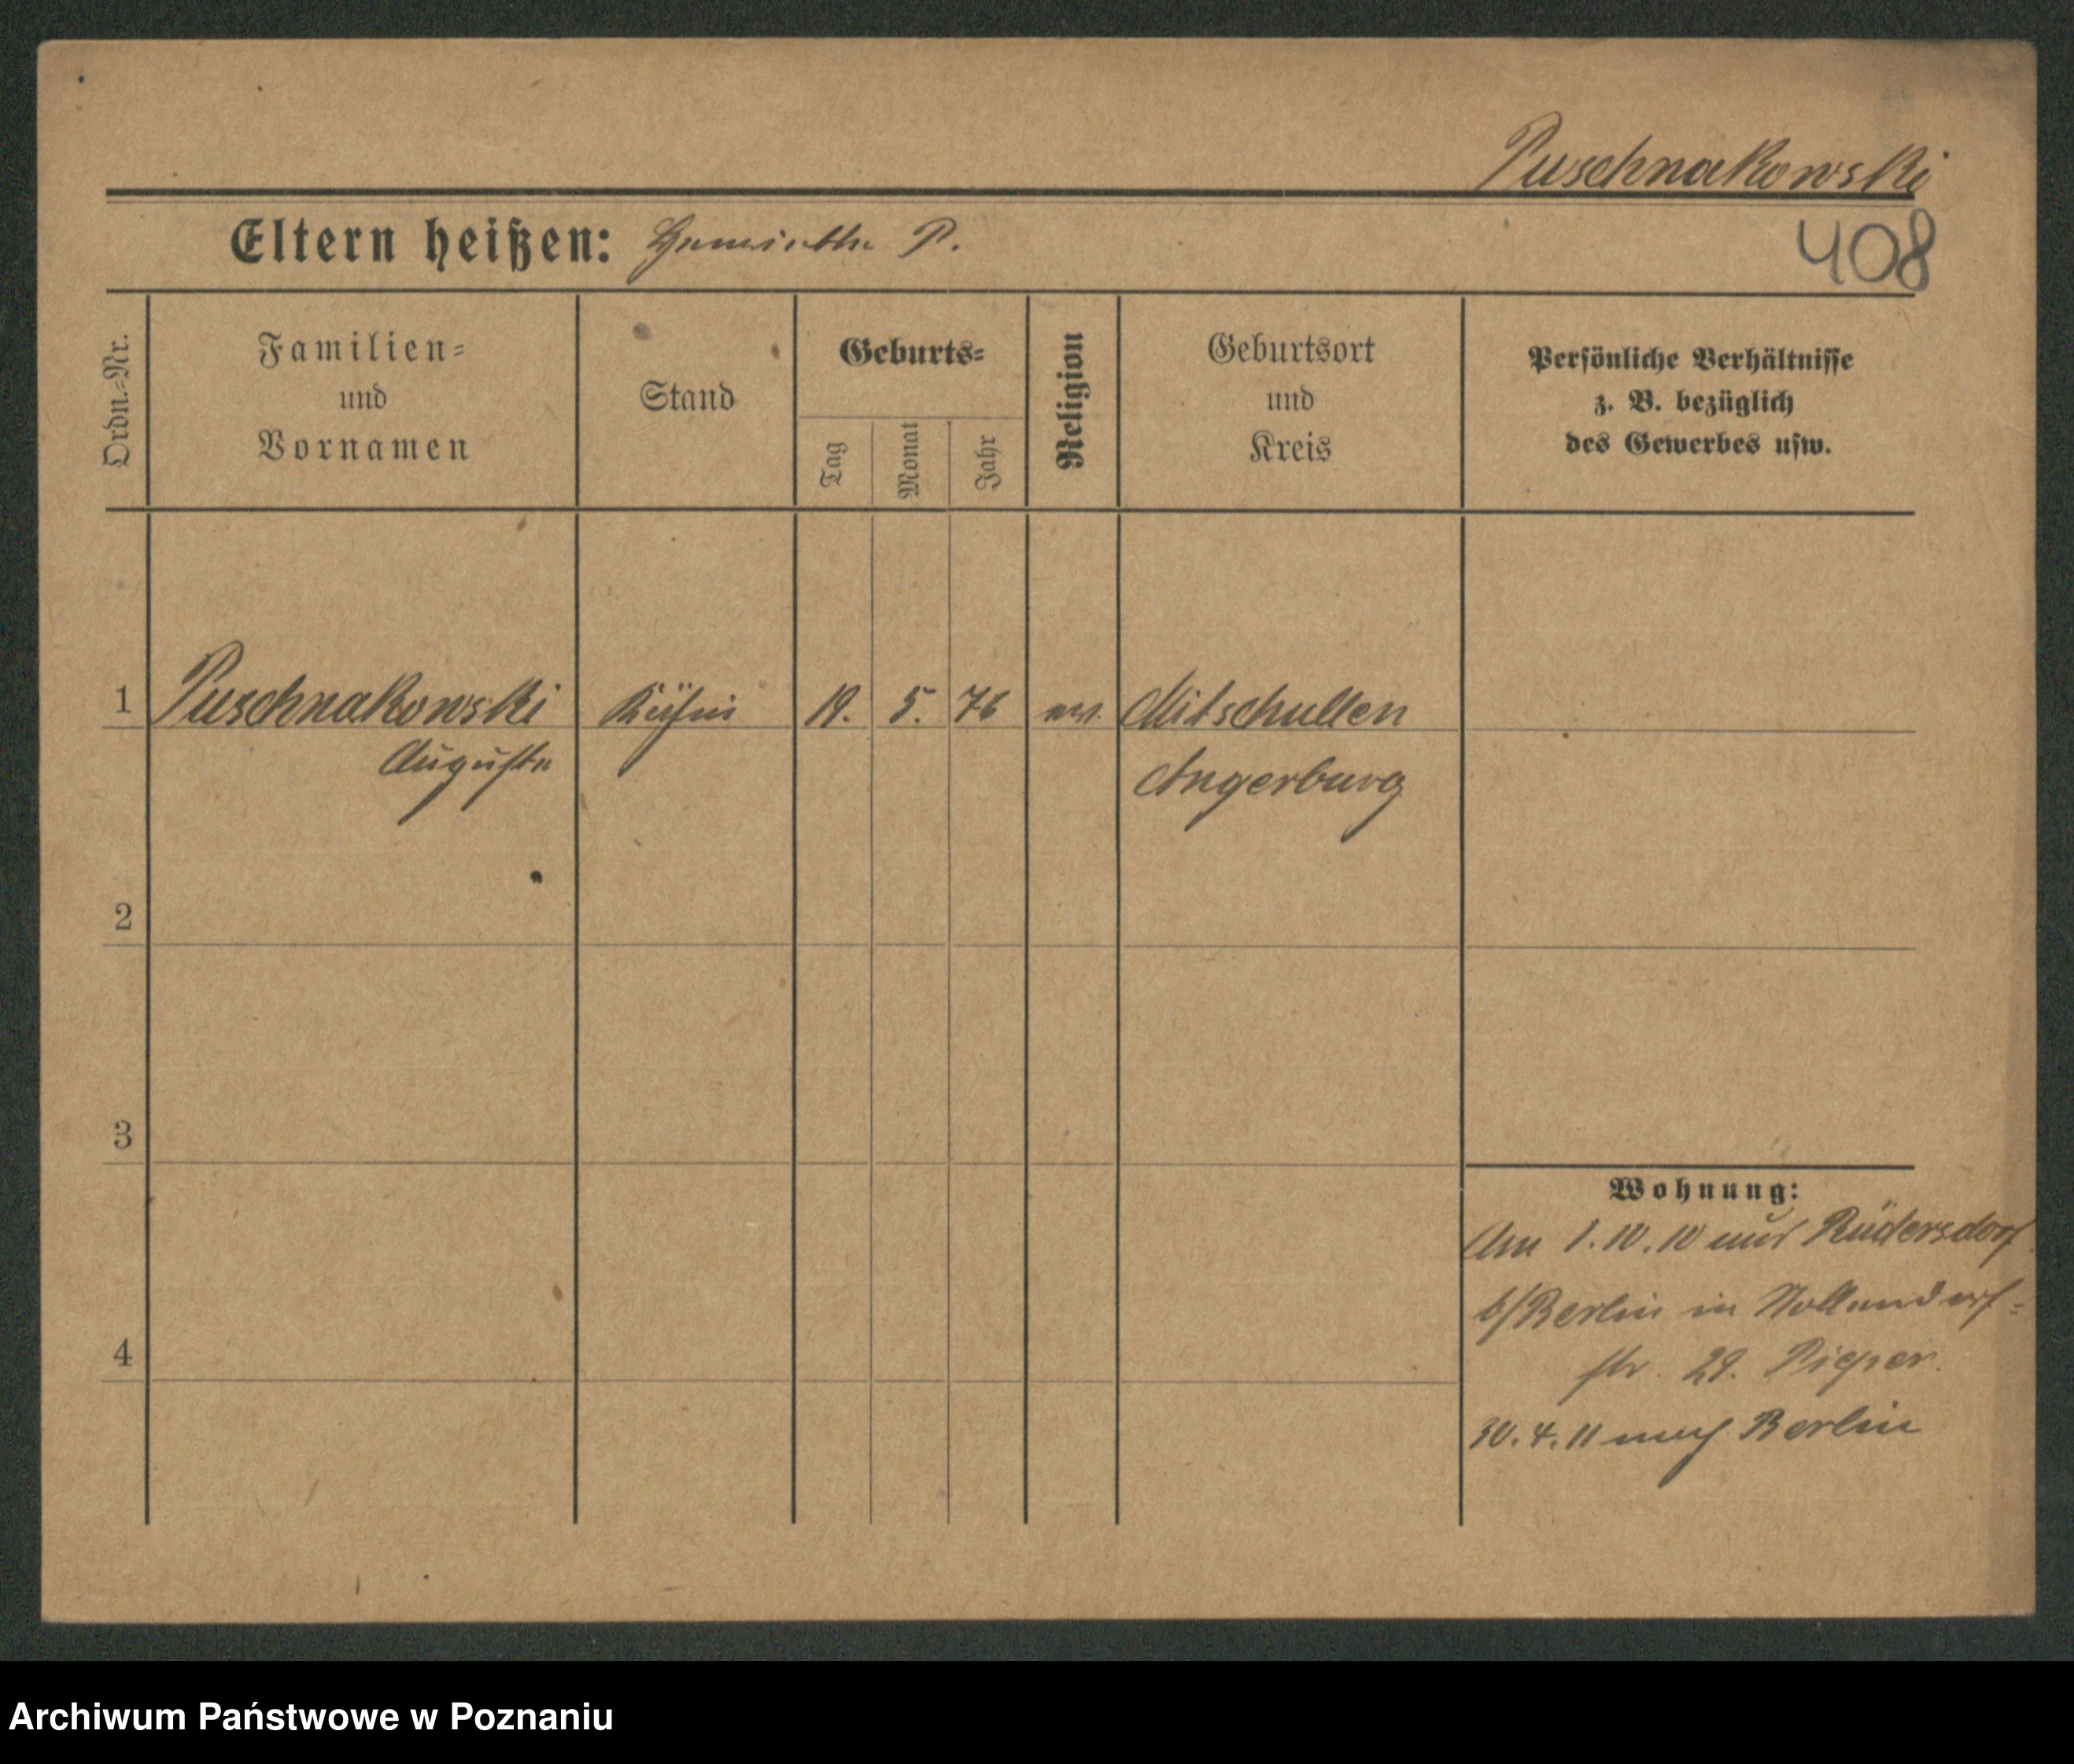 Puschnakowski
Eltern heißen: Henriette P.
408
Ordn.-Nr.
Familien-
und
Vornamen
Stand
Geburts-
Tag
Monat
Jahr
Religion
Geburtsort
und
Kreis
Persönliche Verhältnisse
z. B. bezüglich
des Gewerbes usw.
1 Puschnakowski Köchin 19. 5. 76 ev. Mitschullen
Auguste Angerburg
2
3
4
Wohnung:
Am 1.10.10 aus Rüdersdorf
b/Berlin in Nollendorf-
str. 29. Pieper.
30.4.11 nach Berlin
Archiwum Państwowe w Poznaniu